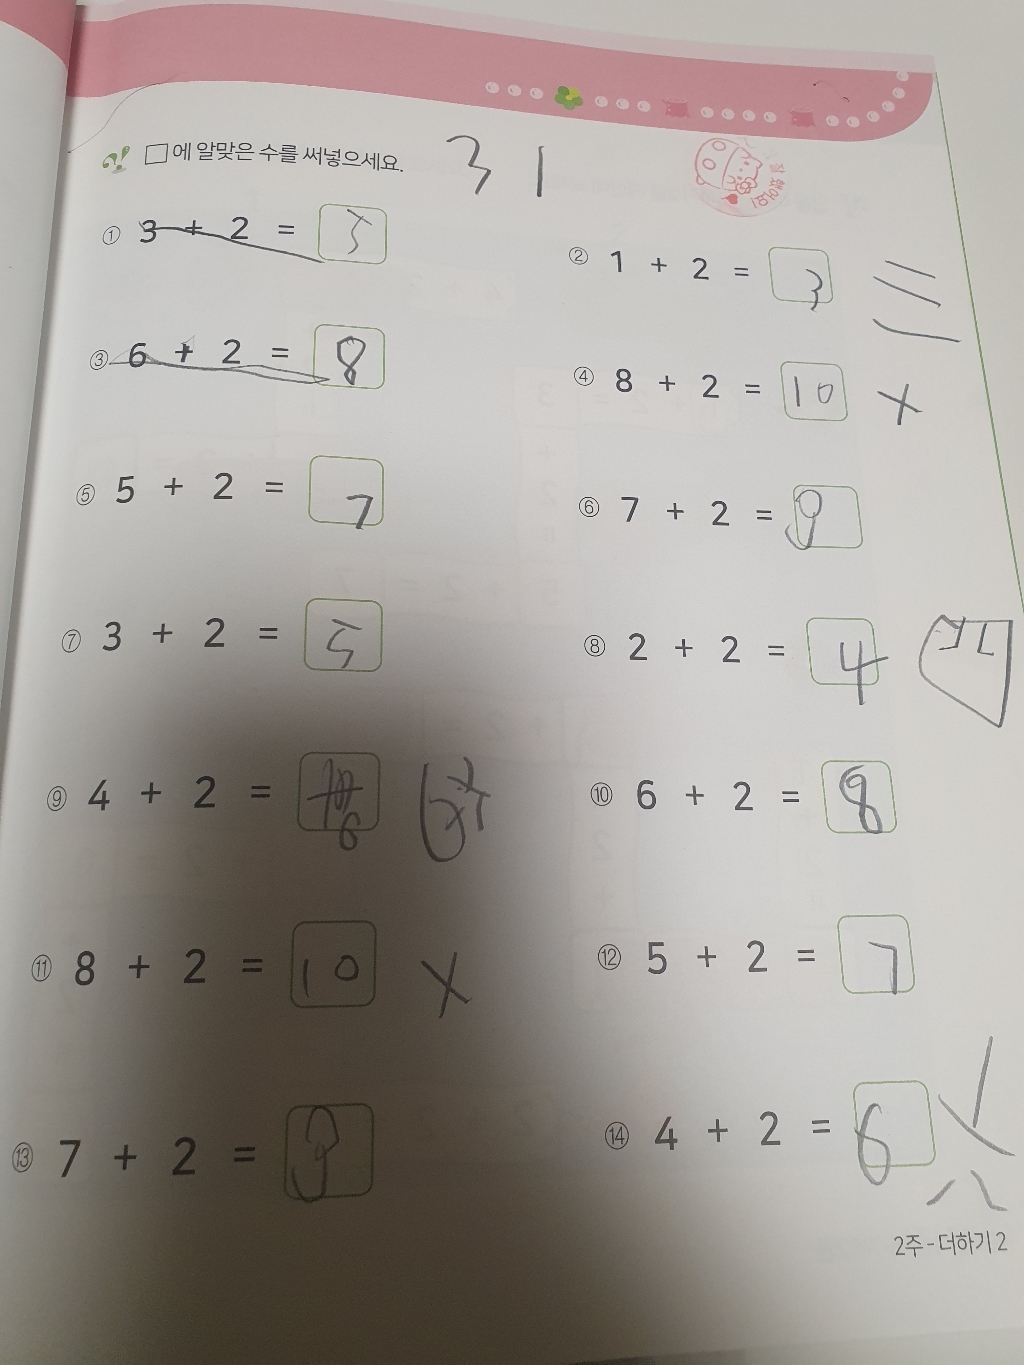 □에 알맞은 수를 써넣으세요. 3 1
잘했어요!
① 3 + 2 = 5
② 1 + 2 = 3 三
③ 6 + 2 = 8
④ 8 + 2 = 10 十
⑤ 5 + 2 = 7
⑥ 7 + 2 = 9
⑦ 3 + 2 = 5
⑧ 2 + 2 = 4 四
⑨ 4 + 2 = 6
⑩ 6 + 2 = 8
⑪ 8 + 2 = 10 十
⑫ 5 + 2 = 7
⑬ 7 + 2 = 9
⑭ 4 + 2 = 6 六
2주-더하기 2